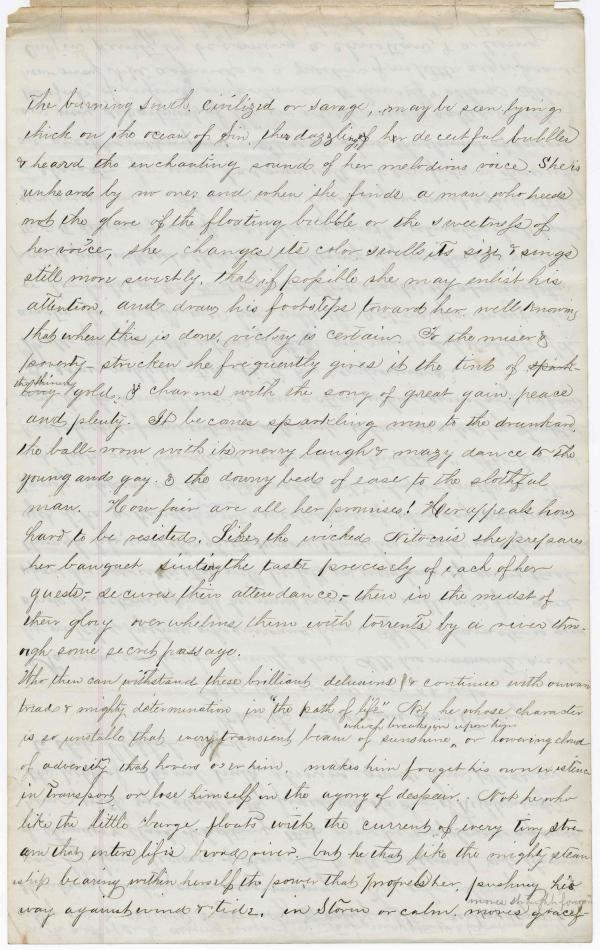 The burning south, civilized or savage, may be seen lying
thick on the ocean of sin, the dazzling of her deceitful bubbles
& heard the enchanting sound of her melodious voice. She is
unheard by no one, and when she finds a man who heeds
not the glare of the floating bubble or the sweetness of
her voice, she changes its color swells its size, & sings
still more sweetly, that if possible she may enlist his
attention, and draw his footsteps toward her, well knowing
that when this is done, victory is certain. To the miser &
poverty-stricken she frequently gives it the tint of spark-
the shining
gold, & charms with the song of great gain, peace
and plenty. It becomes sparkling wine to the drunkard,
the ball-room with its merry laugh & mazy dance to the
young and gay, & the downy beds of ease to the slothful
man. How fair are all her promises! Her appeals how
hard to be resisted. Like the wicked Nitocris she prepares
her banquet suiting the taste precisely of each of her
guests,- secures their attendance,- then in the midst of
their glory overwhelms them with torrents by a river thro-
ugh some secret passage.
Who then can withstand these brilliant delusions & continue with onward
tread & mighty determination in "the path of life" Not he whose character
which breaks in upon him
is so unstable that every transient beam of sunshine, or lowering cloud
of adversity that hovers over him, makes him forget his own existence
in transport, or lose himself in the agony of despair. Not he who
like the little barge floats with the current of every tiny stre-
am that enters life's broad river, but he that like the mighty steam
ship bearing within herself the power that propels her, pushing his
moves straight forward
way against wind & tide, in storm or calm. moves gracef-